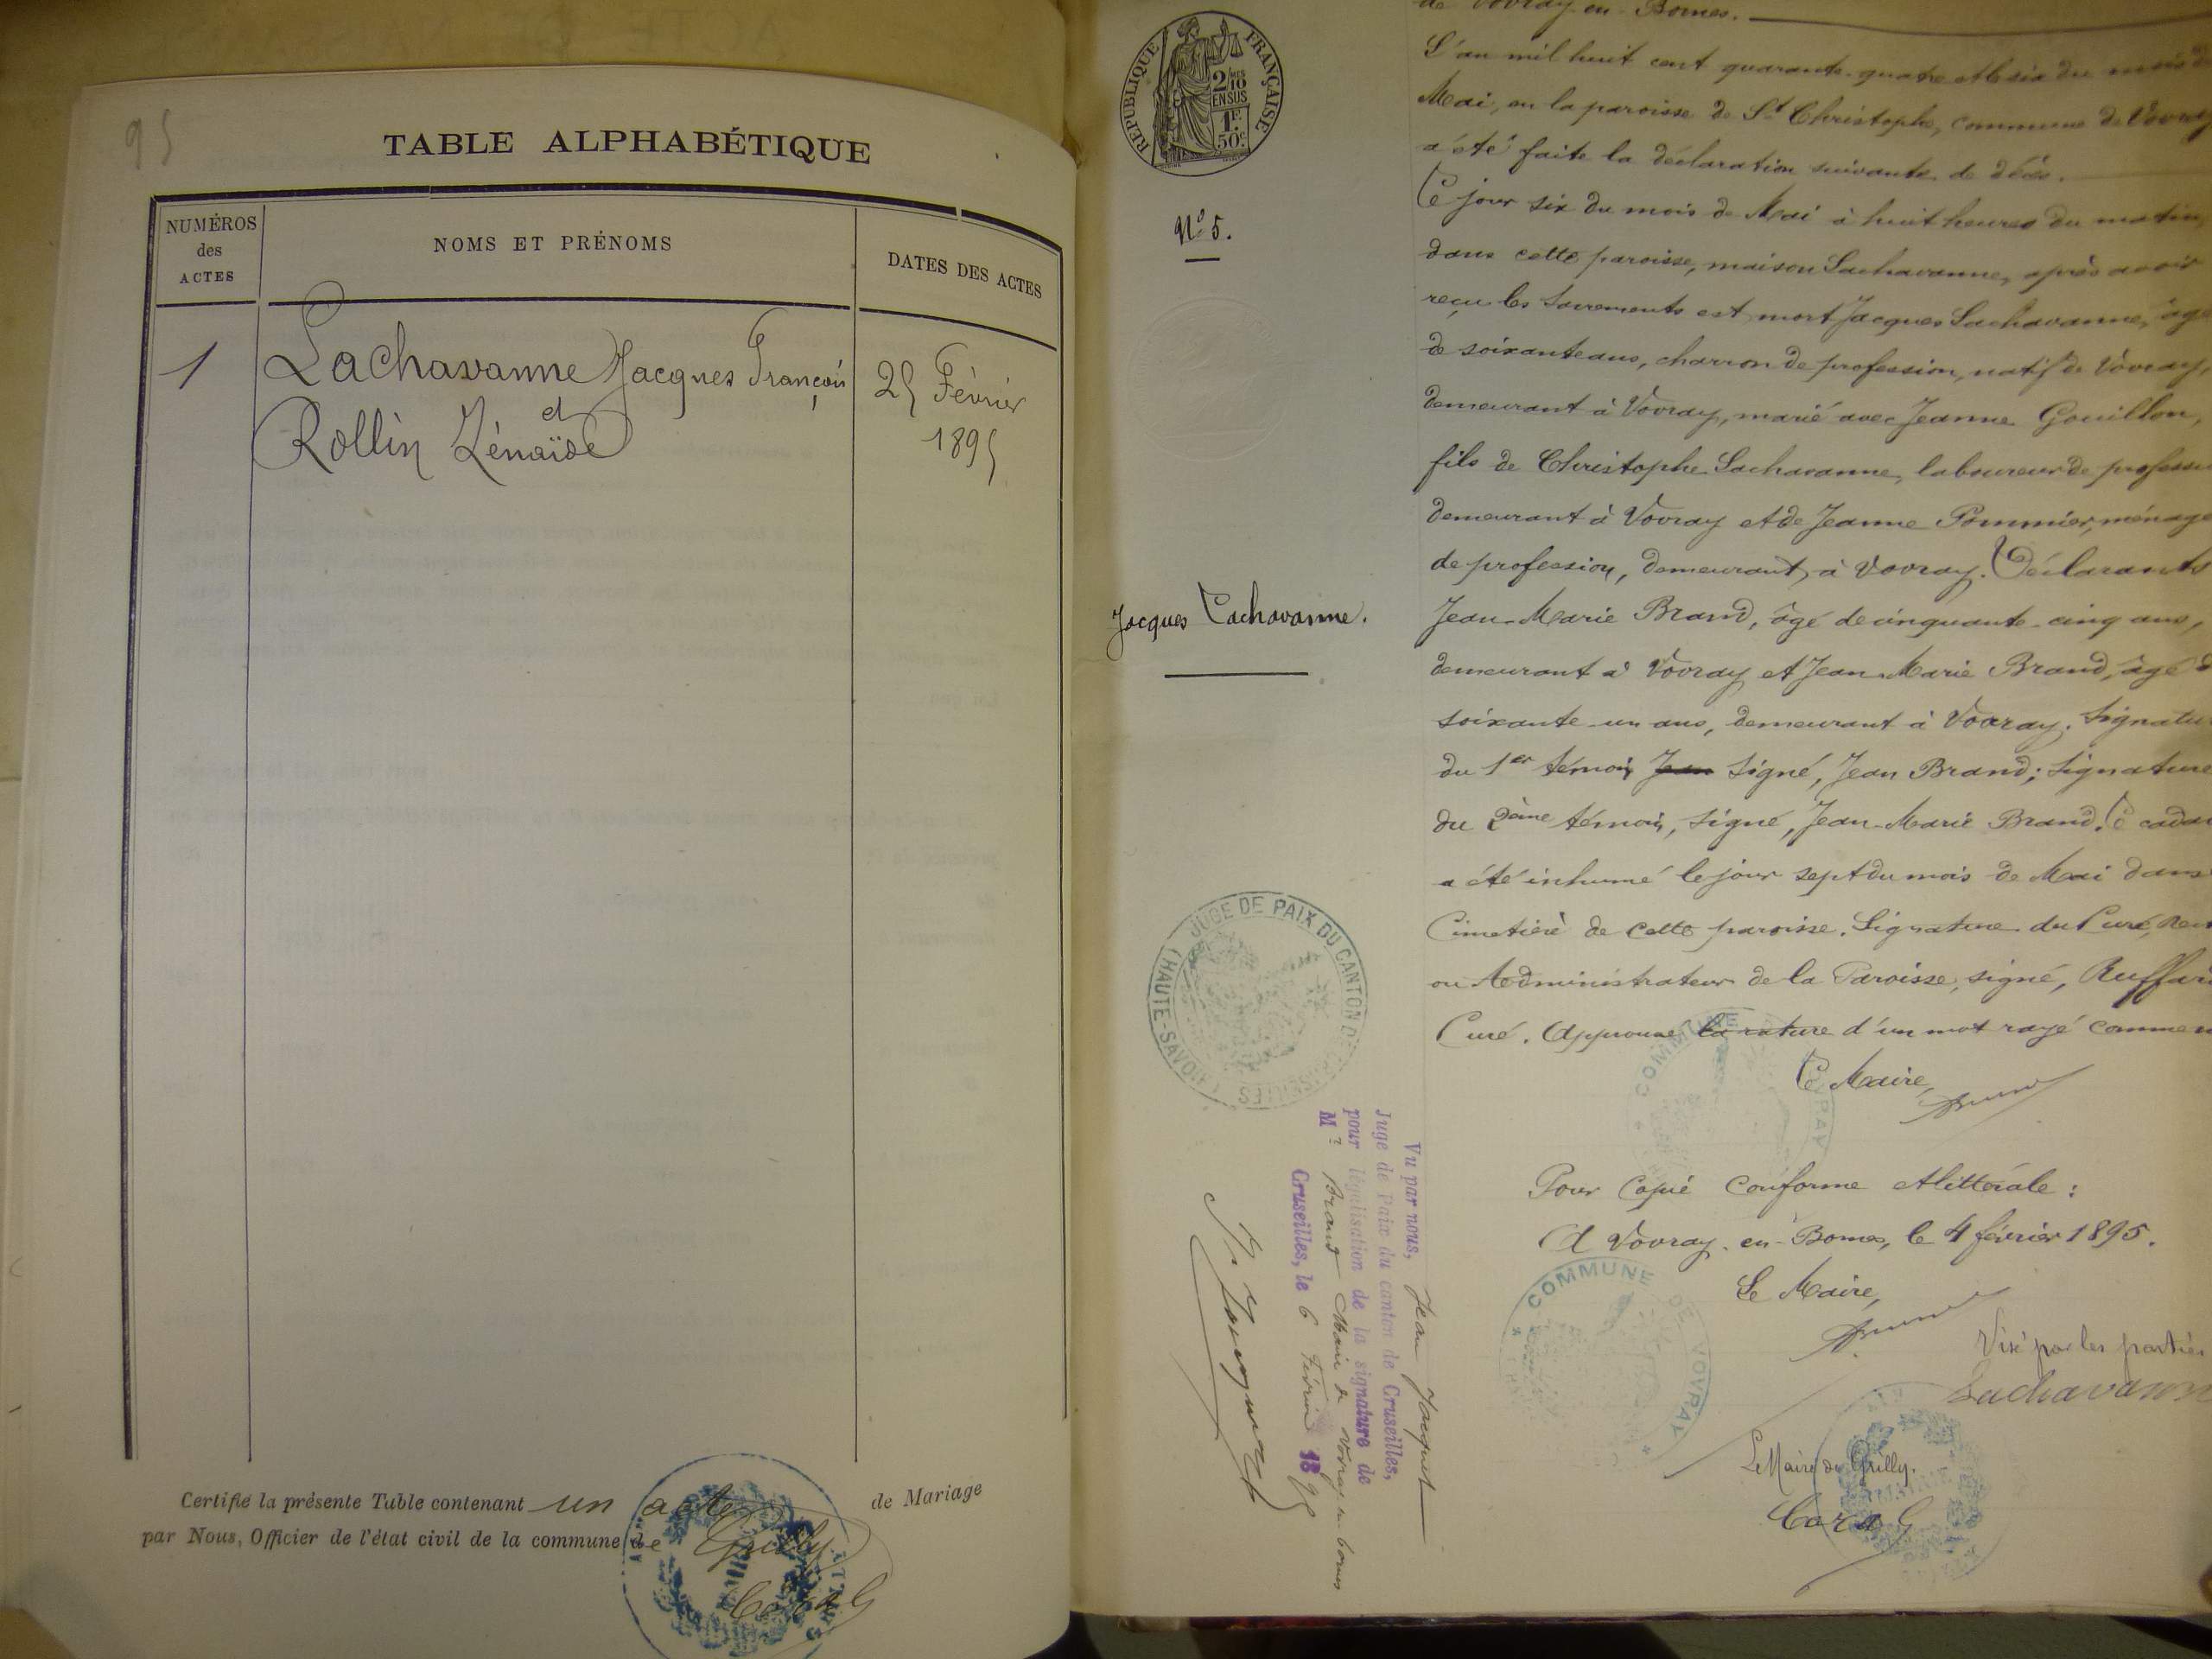 95
TABLE ALPHABÉTIQUE
NUMÉROS
des
ACTES
NOMS ET PRÉNOMS
DATES DES ACTES
1
Lachavanne Jacques François
et
Rollin Zénaïde
25 Février
1895
Certifié la présente Table contenant un acte de Mariage
par Nous, Officier de l'état civil de la commune de Grilly
Coral
REPUBLIQUE FRANÇAISE
2/10 MES
EN SUS
1F.
50c.
No 5.
Jacques Lachavanne.
de Vovray-en-Bornes.
L'an mil huit cent quarante-quatre et le six du mois de
Mai, en la paroisse de St Christophe, commune de Vovray
a été faite la déclaration suivante de décès.
Ce jour six du mois de Mai à huit heures du matin,
dans cette paroisse, maison Lachavanne, après avoir
reçu les Sacrements est mort Jacques Lachavanne, âgé
de soixante ans, charron de profession, natif de Vovray,
demeurant à Vovray, marié avec Jeanne Gouillon,
fils de Christophe Lachavanne, laboureur de profession
demeurant à Vovray et de Jeanne Pommier, ménagè
de profession, demeurant à Vovray. Déclarants
Jean-Marie Brand, âgé de cinquante-cinq ans,
demeurant à Vovray et Jean-Marie Brand, âgé d
soixante-un ans, demeurant à Vovray. Signatu
du 1er témoin Jean signé, Jean Brand; signature
du 2ème témoin, signé, Jean-Marie Brand. Le cadav
a été inhumé le jour sept du mois de Mai dans
Cimetière de cette paroisse. Signature du Curé, Rec
ou Administrateur de la Paroisse, signé, Ruffard
Curé. Approuvé la rature d'un mot rayé comme n
Le Maire,
COMMUNE VOVRAY
Pour Copie Conforme et littérale:
A Vovray-en-Bornes, le 4 février 1895.
Le Maire,
COMMUNE DE VOVRAY
JUGE DE PAIX DU CANTON DE CRUSEILLES (HAUTE-SAVOIE)
Vu par nous, Jean Jacquet
Juge de Paix du canton de Cruseilles,
pour légalisation de la signature de
Mr Brand Maire de Vovray en bornes
Cruseilles, le 6 Février 1895
Visé par les parties
Lachavanne
Le Maire de Grilly.
Coral